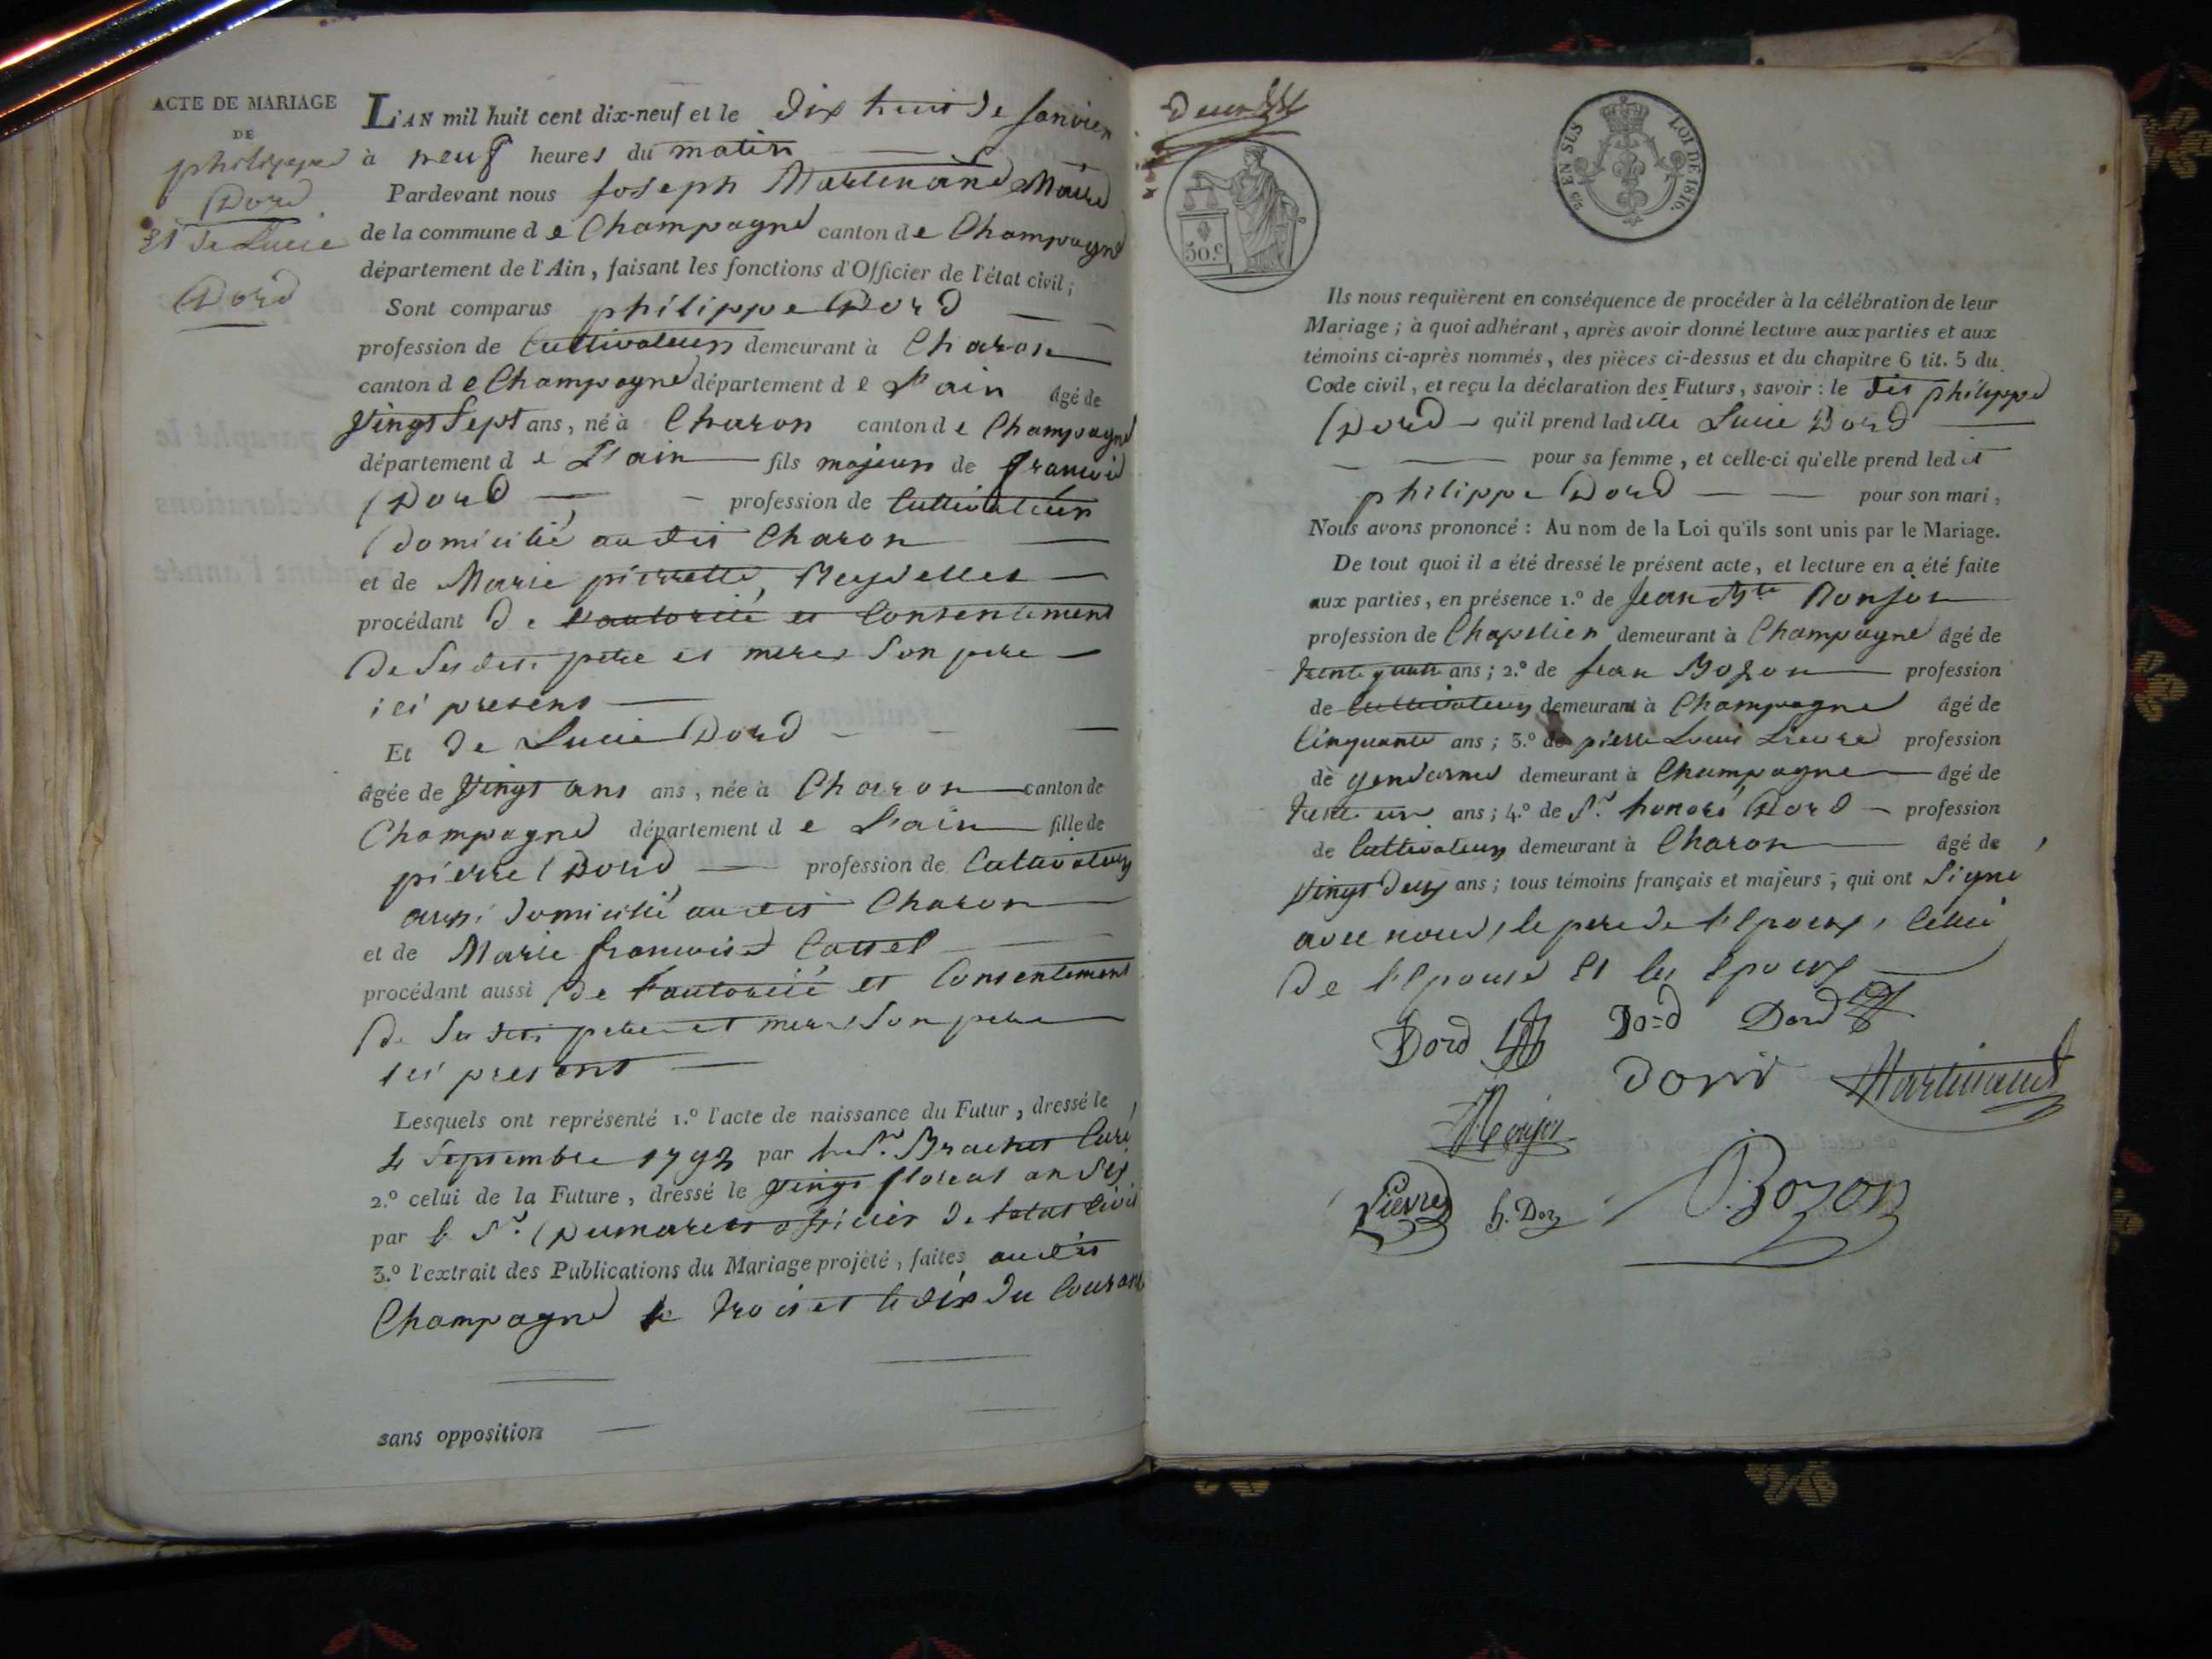 ACTE DE MARIAGE
DE
philippe
Dord
Et de Lucie
Dord
L'AN mil huit cent dix-neuf et le dix huit de janvier
à neuf heures du matin
Pardevant nous joseph Martinand Maire
de la commune de Champagne canton de Champagne
département de l'Ain, faisant les fonctions d'Officier de l'état civil;
Sont comparus philippe Dord
profession de Cultivateur demeurant à Charon
canton de Champagne département de l'ain âgé de
Vingt Sept ans, né à Charon canton de Champagne
département de L'ain fils majeur de francois
Dord profession de Cultivateur
domicilié audit Charon
et de Marie pierrette
procédant de l'autorité et Consentement
de ses dits pere et mere Son pere
ici present
Et de Lucie Dord
âgée de Vingt ans ans, née à Charon canton de
Champagne département de L'ain fille de
pierre Dord profession de Cultivateur
aussi domicilié audit Charon
et de Marie francoise
procédant aussi de l'autorité et Consentement
de ses dits pere et mere Son pere
ici present
Lesquels ont représenté 1.º l'acte de naissance du Futur, dressé le
4 Septembre par le Sr. Brachet Curé
2.º celui de la Future, dressé le vingt floreal an Six
par le Sr. Dumarest officier de l'etat Civil
3.º l'extrait des Publications du Mariage projeté, faites audit
Champagne le trois et le dix du Courant
sans opposition
Deux
50 c
c/s EN SUS
LOI DE 1816.
Ils nous requièrent en conséquence de procéder à la célébration de leur
Mariage; à quoi adhérant, après avoir donné lecture aux parties et aux
témoins ci-après nommés, des pièces ci-dessus et du chapitre 6 tit. 5 du
Code civil, et reçu la déclaration des Futurs, savoir: le dit philippe
Dord qu'il prend ladite Lucie Dord
pour sa femme, et celle-ci qu'elle prend ledit
philippe Dord pour son mari,
Nous avons prononcé: Au nom de la Loi qu'ils sont unis par le Mariage.
De tout quoi il a été dressé le présent acte, et lecture en a été faite
aux parties, en présence 1.º de Jean Bte Monjon
profession de Chapelier demeurant à Champagne âgé de
trente quatre ans; 2.º de jean Bozon profession
de Cultivateur demeurant à Champagne âgé de
Cinquante ans; 3.º de pierre Louis Lievre profession
de gendarme demeurant à Champagne âgé de
trente un ans; 4.º de Sr. honoré Dord profession
de Cultivateur demeurant à Charon âgé de
Vingt deux ans; tous témoins français et majeurs, qui ont Signé
avec nous, le pere de l'Epoux, Celui
de l'Epouse Et les Epoux
Dord Dord Dord
Dord Martinand
Monjon
Lievre h. Dord J. Bozon